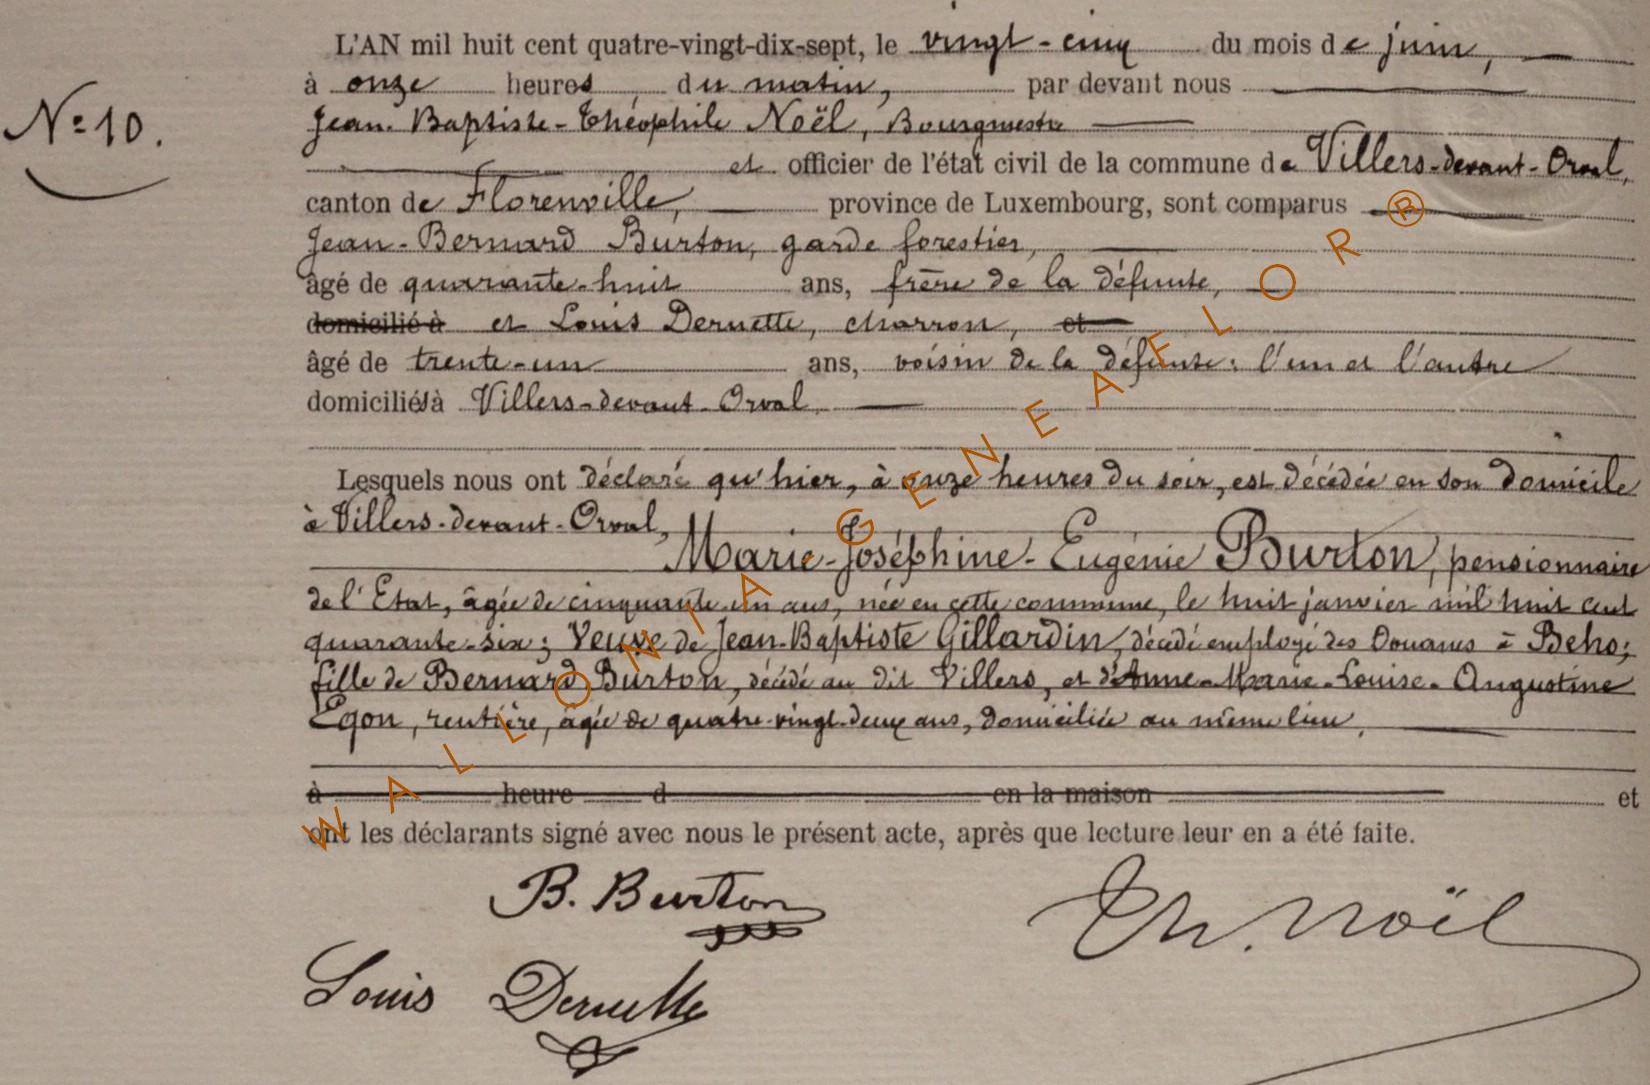 L'AN mil huit cent quatre-vingt-dix-sept, le vingt-cinq du mois de juin,
à onze heures du matin, par devant nous
N° 10.
Jean-Baptiste-Théophile Noël, Bourgmestre
et officier de l'état civil de la commune de Villers-devant-Orval,
canton de Florenville, province de Luxembourg, sont comparus
Jean-Bernard Burton, garde forestier,
âgé de quarante-huit ans, frère de la défunte,
domicilié à et Louis Dernette, charron, et
âgé de trente-un ans, voisin de la défunte; l'un et l'autre
domiciliés à Villers-devant-Orval.
Lesquels nous ont déclaré qu'hier, à onze heures du soir, est décédée en son domicile
à Villers-devant-Orval,
Marie-Joséphine-Eugénie Burton, pensionnaire
de l'Etat, âgée de cinquante-un ans, née en cette commune, le huit janvier mil huit cent
quarante-six; Veuve de Jean-Baptiste Gillardin, décédé employé des Douanes à Beho;
fille de Bernard Burton, décédé au dit Villers, et d'Anne-Marie-Louise-Augustine
Egon, rentière, âgée de quatre-vingt-deux ans, domiciliée au même lieu.
à heure d en la maison et
ont les déclarants signé avec nous le présent acte, après que lecture leur en a été faite.
B. Burton
Th. Noël
Louis Dernette
WALLONIA GENEAFLOR ®